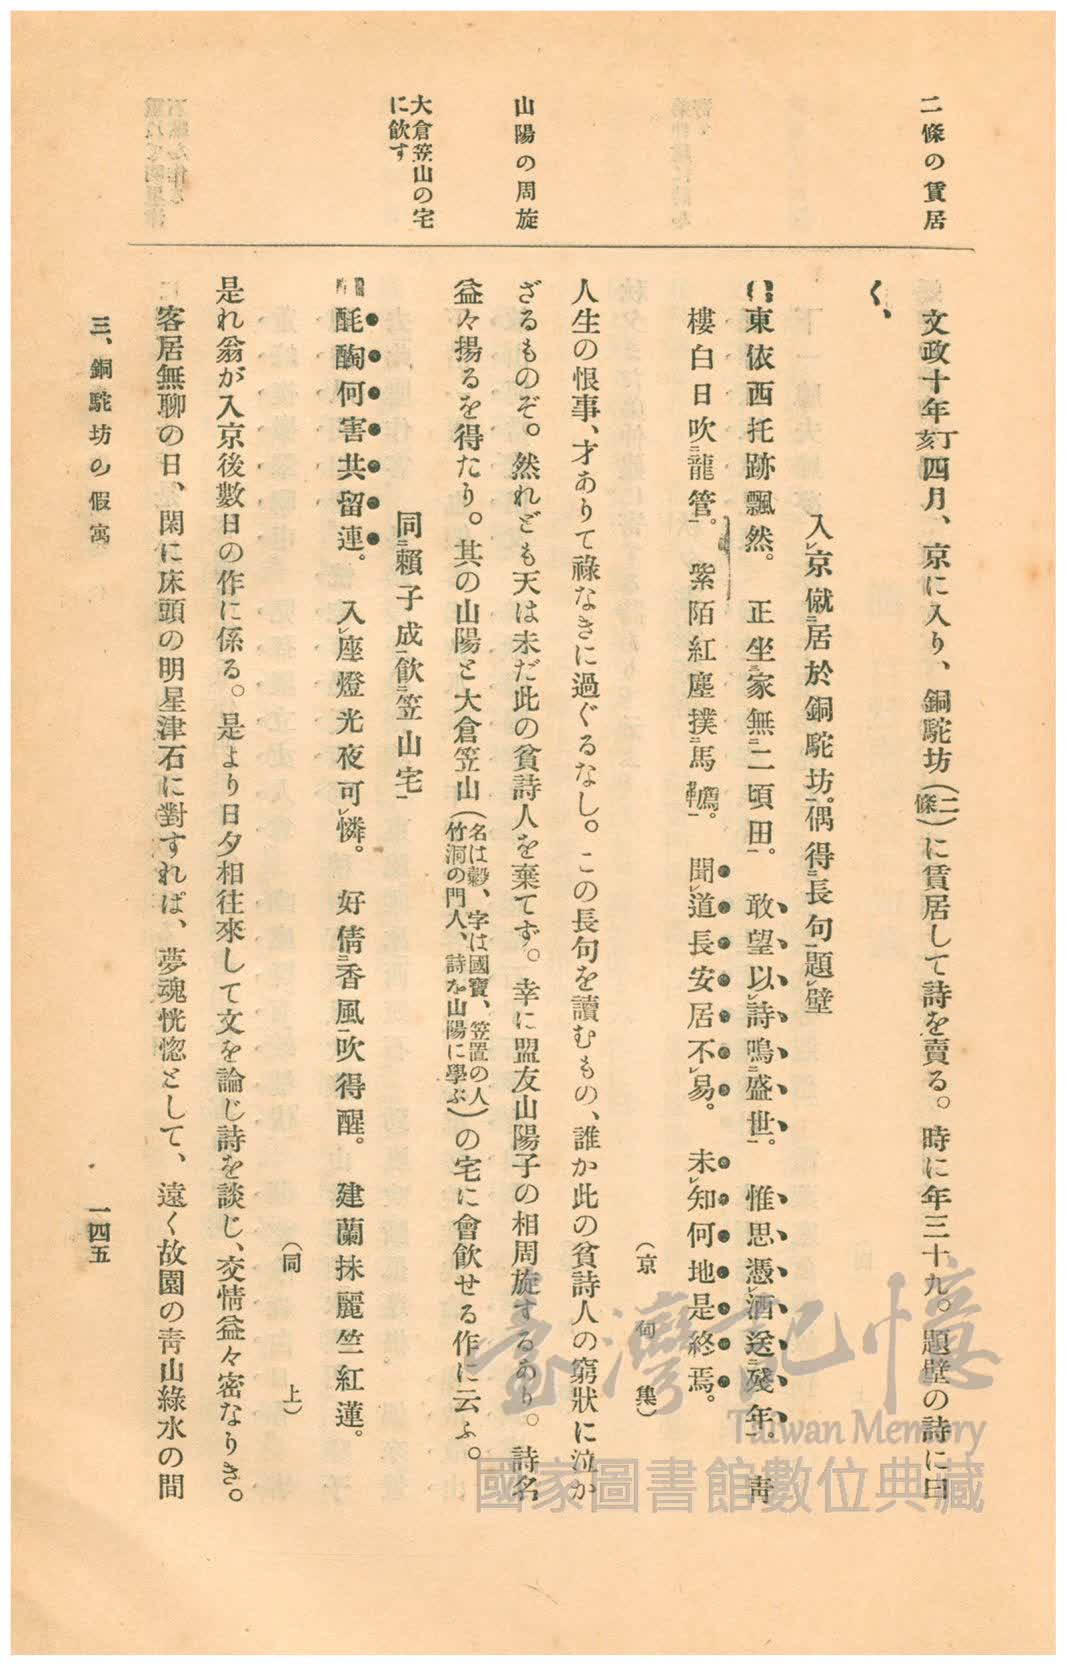 二條の賃居
山陽の周旋
大倉笠山の宅
に飮す
文政十年亥丁四月、京に入り、銅駝坊(二條)に賃居して詩を賣る。時に年三十九。題壁の詩に曰
く、
入レ京僦二居於銅駝坊一。偶得二長句一題レ壁
東依西托跡飄然。 正坐三家無二二頃田一。 敢望以レ詩鳴二盛世一。 惟思憑レ酒送二殘年一。 靑
樓白日吹二龍管一。 紫陌紅塵撲二馬韉一。 聞レ道長安居不レ易。 未レ知何地是終焉。
(京甸集)
人生の恨事、才ありて祿なきに過ぐるなし。この長句を讀むもの、誰か此の貧詩人の窮狀に泣か
ざるものぞ。然れども天は未だ此の貧詩人を棄てず。幸に盟友山陽子の相周旋するあり。詩名
益々揚るを得たり。其の山陽と大倉笠山(名は縠、字は國寶、笠置の人竹洞の門人、詩を山陽に學ぶ)の宅に會飮せる作に云ふ。
同二賴子成一飮二笠山宅一
酕醄何害共留連。 入レ座燈光夜可レ憐。 好倩二香風一吹得醒。 建蘭抹麗竺紅蓮。
(同上)
是れ翁が入京後數日の作に係る。是より日夕相往來して文を論じ詩を談じ、交情益々密なりき。
客居無聊の日、閑に床頭の明星津石に對すれば、夢魂恍惚として、遠く故園の靑山綠水の間
三、銅駝坊の假寓
一四五
臺灣記憶
Taiwan Memory
國家圖書館數位典藏